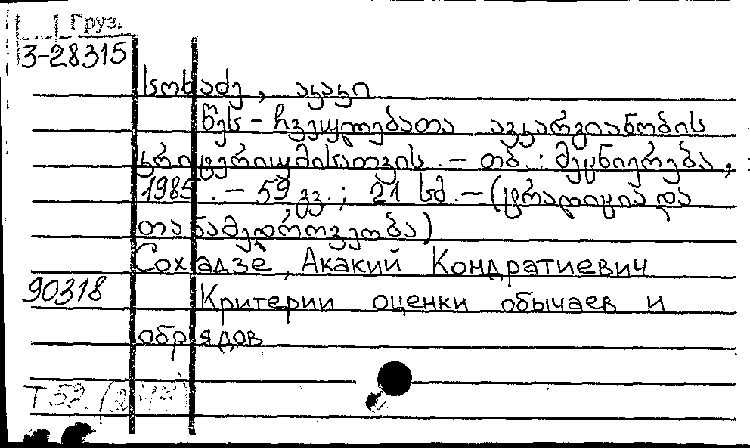 Груз.
3-28315
სოხაძე, აკაკი
წეს-ჩვეულებათა ავკარგიანობის
კრიტერიუმისათვის. - თბ.: მეცნიერება,
1985. - 59 გვ.; 21 სმ. - (ტრადიცია და
თანამედროვეობა)
Сохадзе, Акакий Кондратиевич
90318 Критерии оценки обычаев и
обрядов